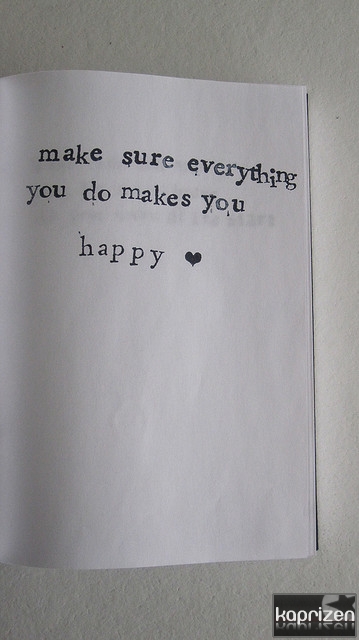 make sure everything
you do makes you
happy ♥
kaprizen